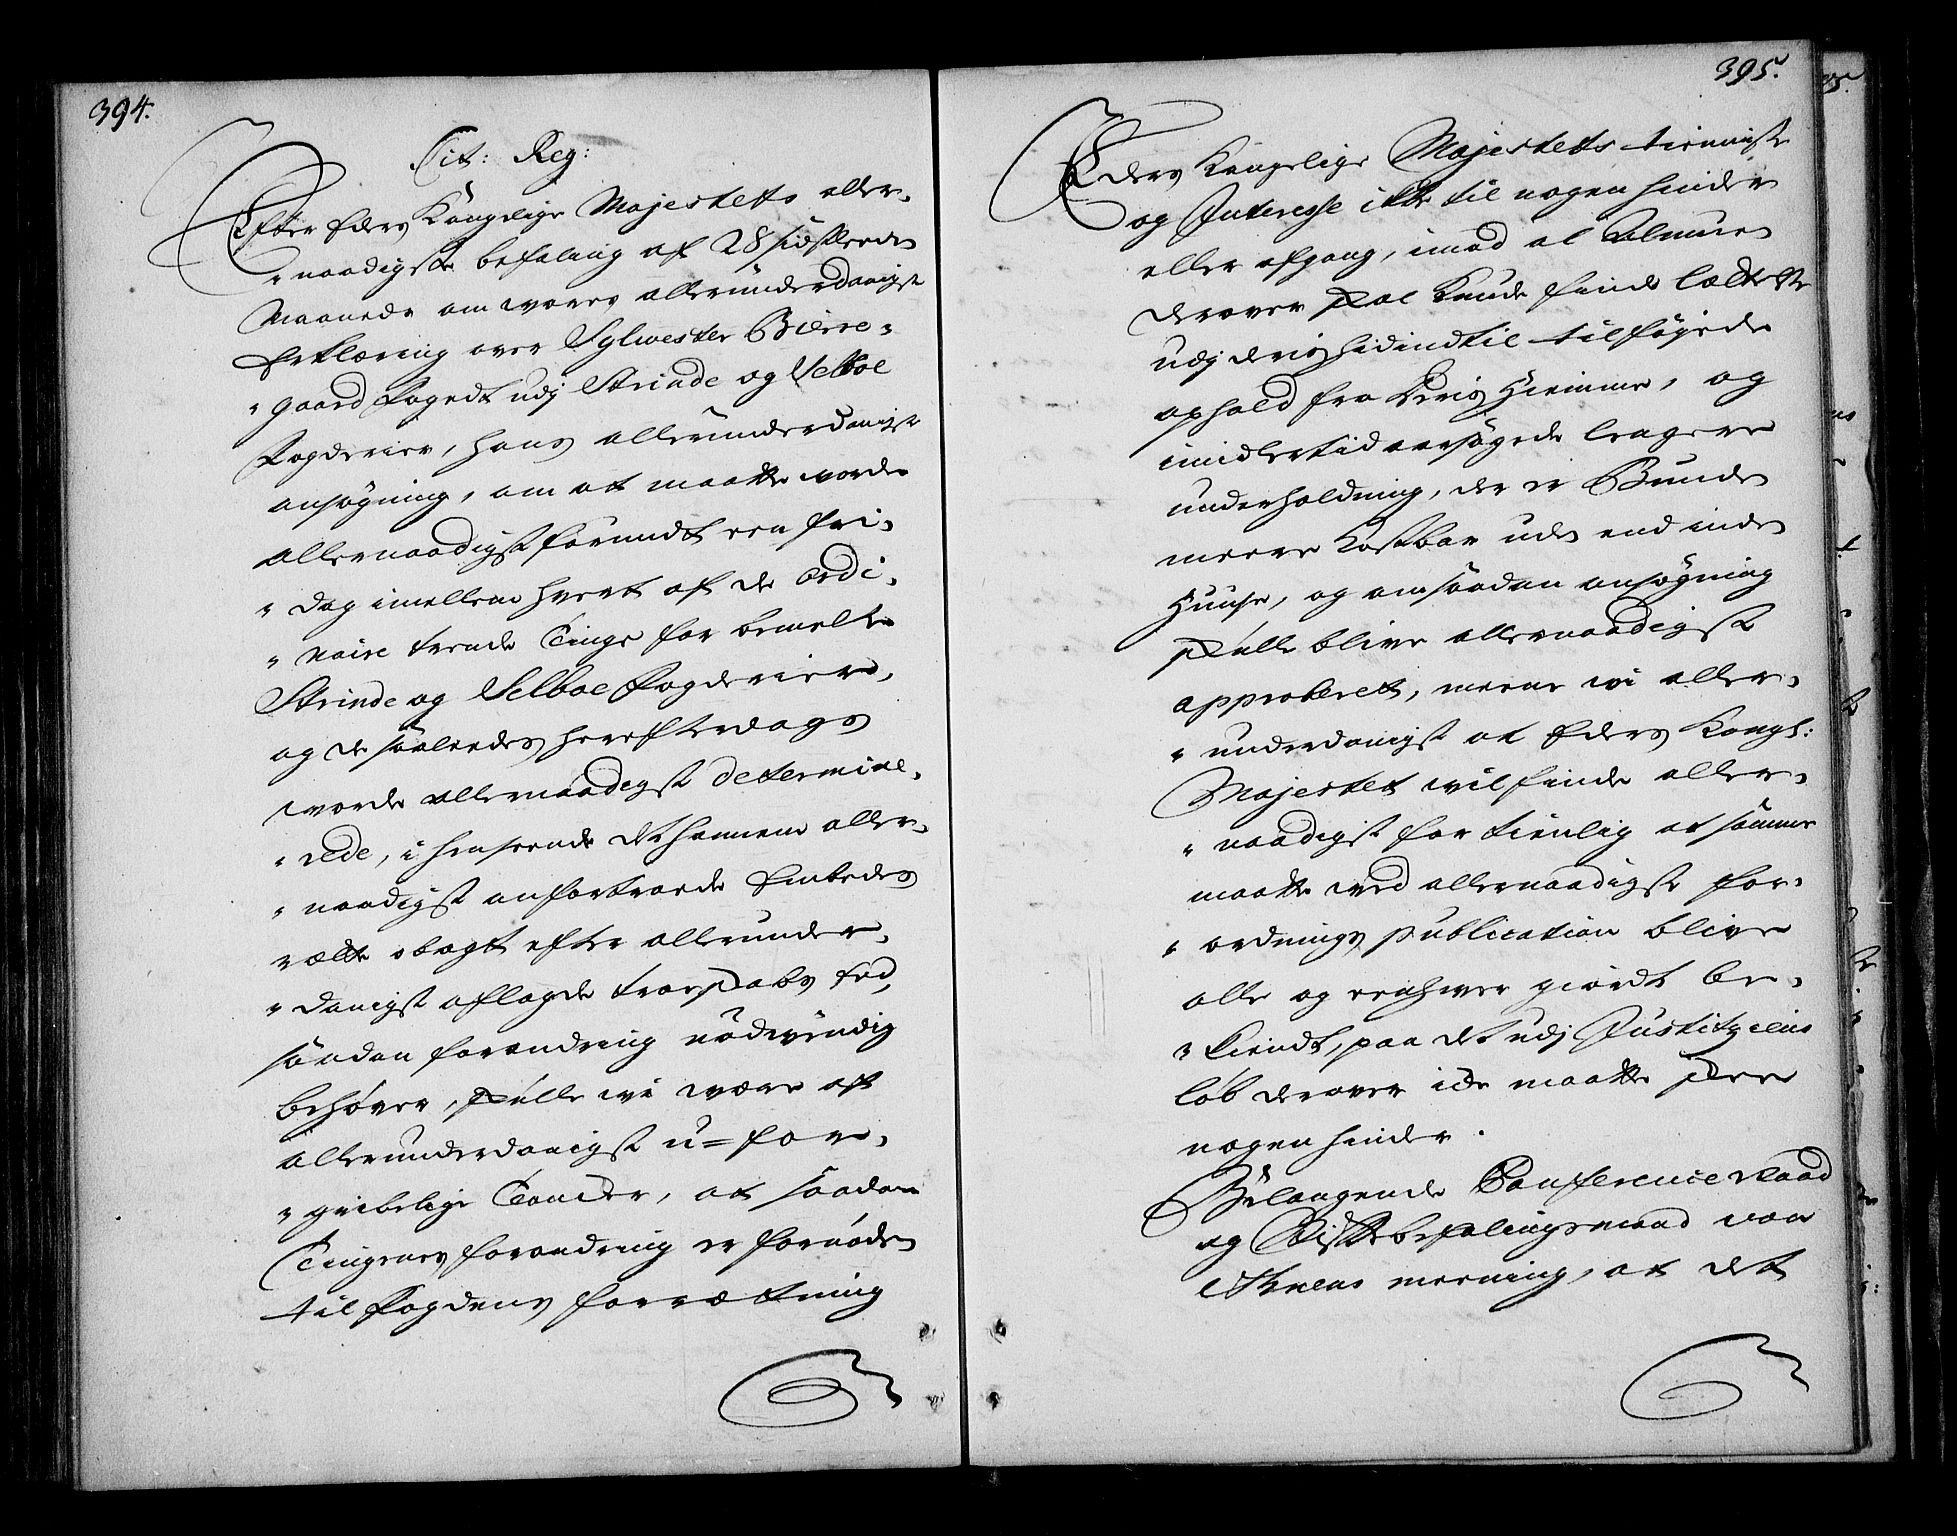 394.
Tit: Reg:
Efter Eders Kongelige Majestetts aller-
"naadigste befaling af 28 sidstleeden
Maanede om vores allerunderdanigste
Erklæring over Sylvester Bierre-
"gaard Fogedt udj Strinde og Selboe
Fogderier, hans allerunderdanigste
ansøgning, om at maatte vorde
allernaadigst forundt een fri-
"dag imellem hvert af de ordi-
"naire trende Tinge for bemelte
Strinde og Selboe Fogderier,
og de saaleedes herefterdags
vorde allernaadigst determine-
"rede, i henseende det hannem aller-
"naadigst anfortroede Embedes
rætte obagt efter allerunder-
"danigst aflagde troeskabs Eed,
saadan forandring nødvendig
behøver, skulle vi være aft
allerunderdanigst u=for-
"gribelige Tancker, at saadan
Tingenes forandring er fornøden
til Fogdens forrætning
395.
Eders Kongelige Majestetts tienniste
og Interesse ikke til nogen hinder
eller afgang, imod al Almuen
derover skal kunde finde lættelse
udj deris hidindtil tilføyede
ophold fra deris Hiemme, og
imidlertid aarsagede lengere
underholdning, der er Bunden
meere kostbar uden end inden
Huuse, og om saadan ansøgning
skulle blive allernaadigst
approberet, meene vi aller-
"underdanigst at Eders Kongl:
Majestet vil finde aller-
"naadigst for tienlig at samme
maatte ved allernaadigste for-
"ordnings publication blive
alle og eenhver giordt be-
"kiendt, paa det udj Justitzens
løb derover icke maatte skee
nogen hinder.
Belangende Conference Raad
og Stiftsbefalingsmand von
Ahnens meening, at det